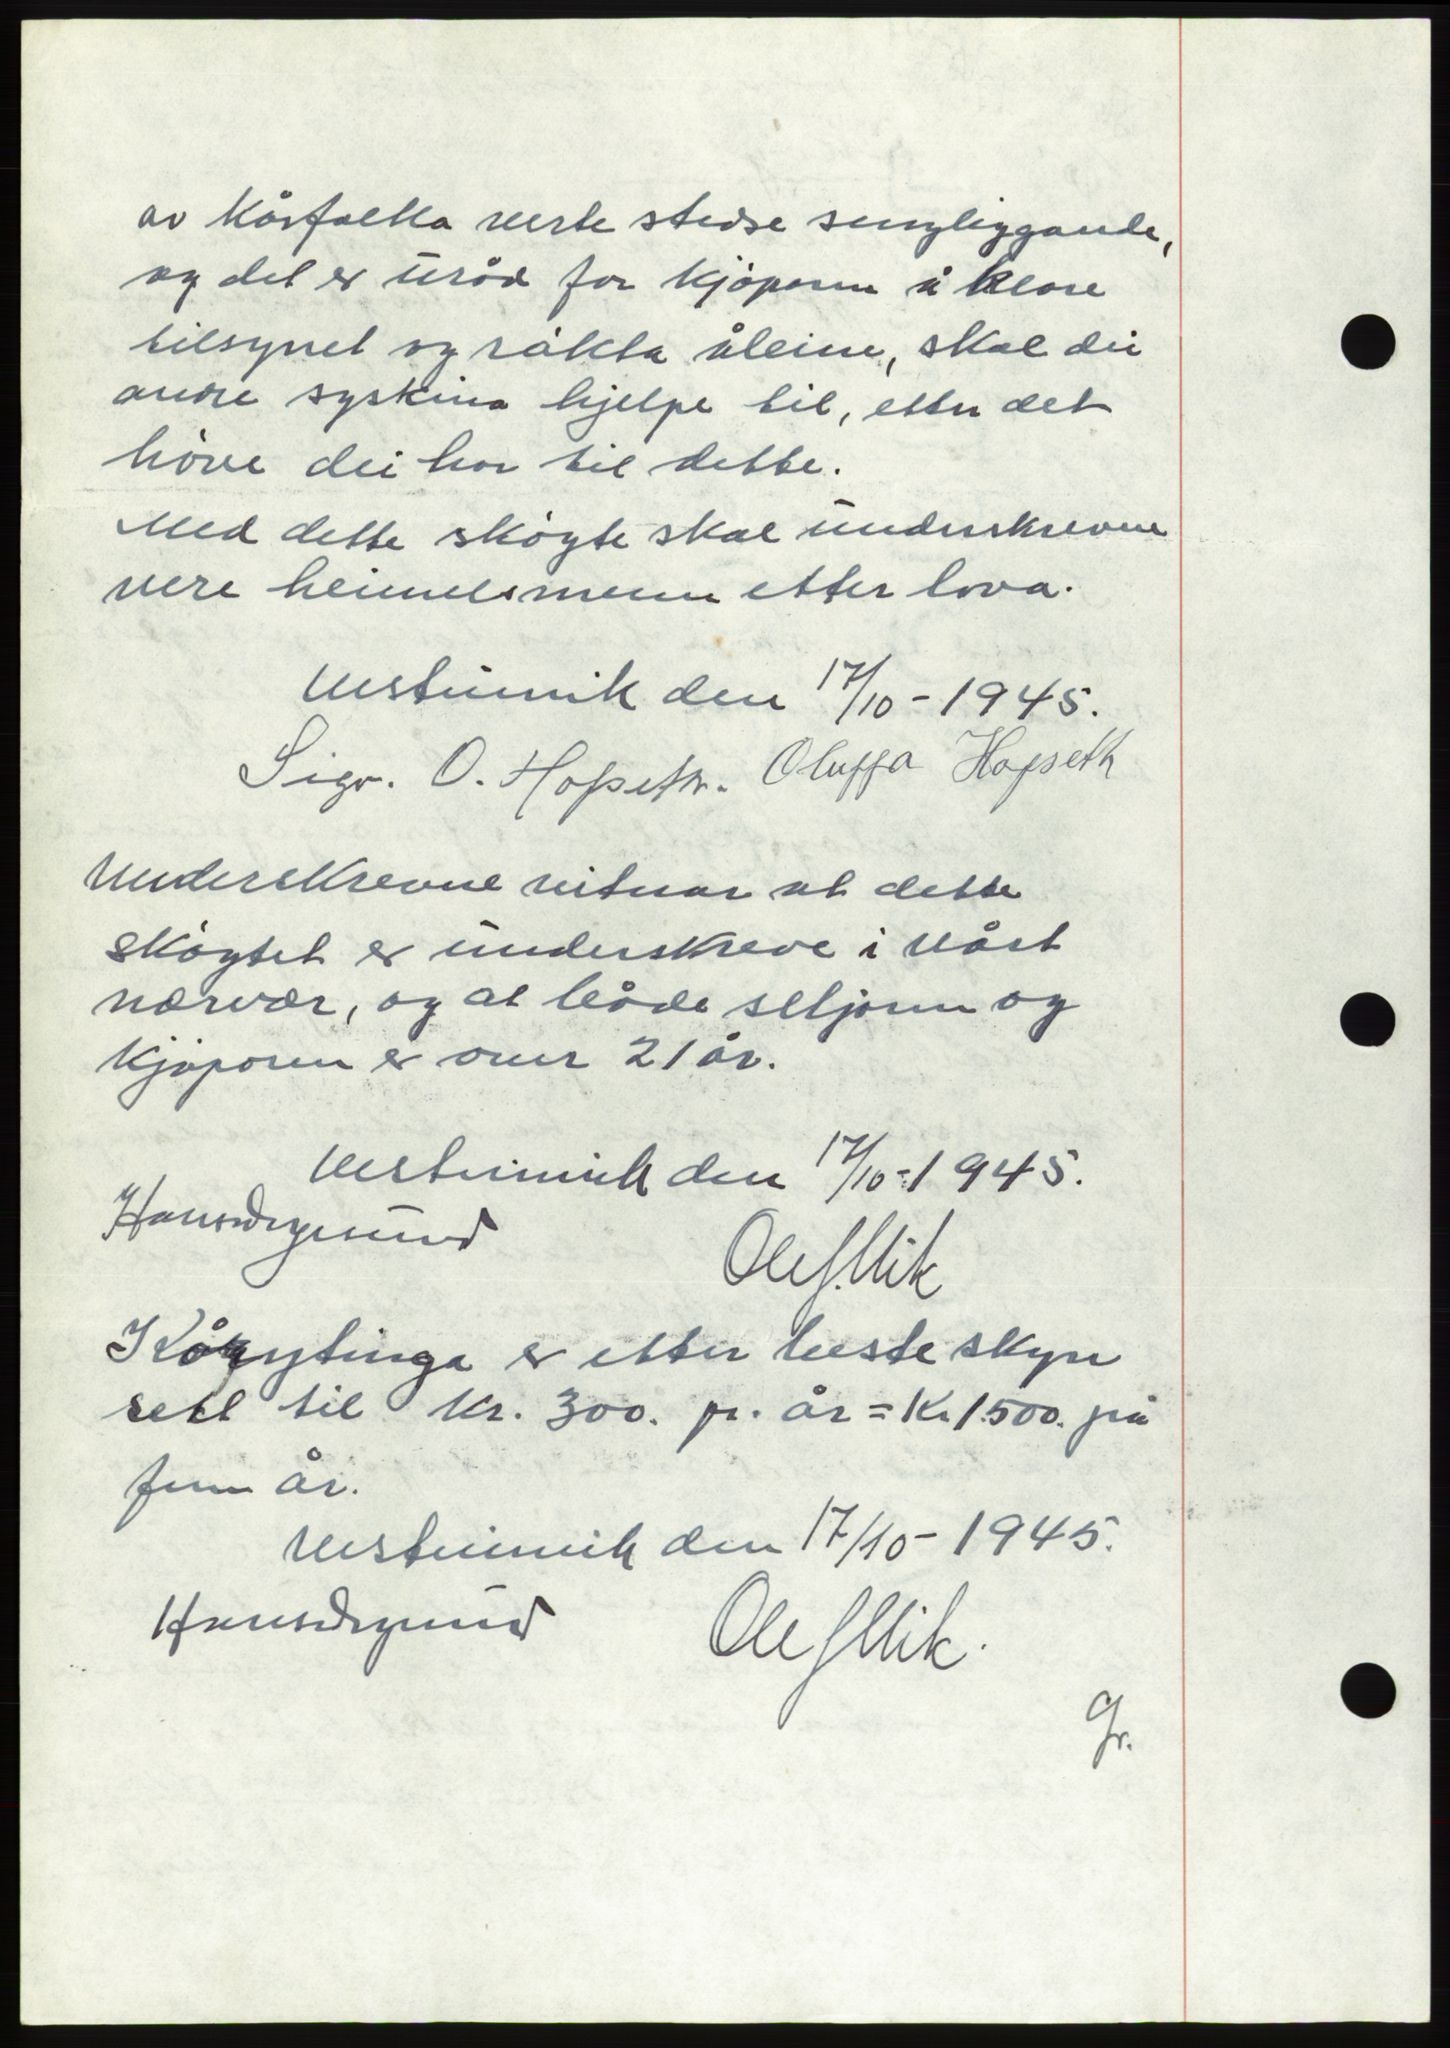 av kårfolka verte stedse sengliggande,
og det er uråd for kjøparen å klare
tilsynet og røkta åleine, skal dei
andre syskina hjelpe til, etter det
høve dei har til dette.
Med dette skøyte skal underskrevne
vere heimelsmenn etter lova.
den 17/10 - 1945.
Sigv. O. Hopseth. Oluffa Hopseth
Underskrevne vitnar at dette
skøytet er underskreve i vårt
nærvær, og at både seljaren og
kjøparen er over 21 år.
den 17/10 - 1945.
Ole J. Vik
Kårytinga er etter beste skyn
sett til kr. 300. pr. år = Kr. 1.500. på
fem år.
den 17/10 - 1945.
Ole J Vik.
Gr.